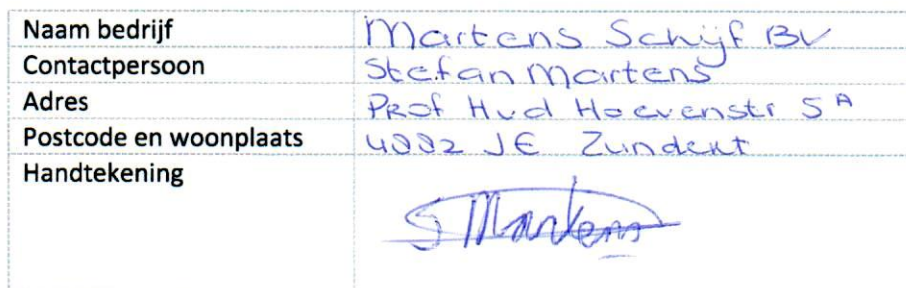 Naam bedrijf Martens Schijf BV
Contactpersoon Stefan Martens
Adres Prof Hvd Hoevenstr 5A
Postcode en woonplaats JE Zundert
Handtekening S Martens